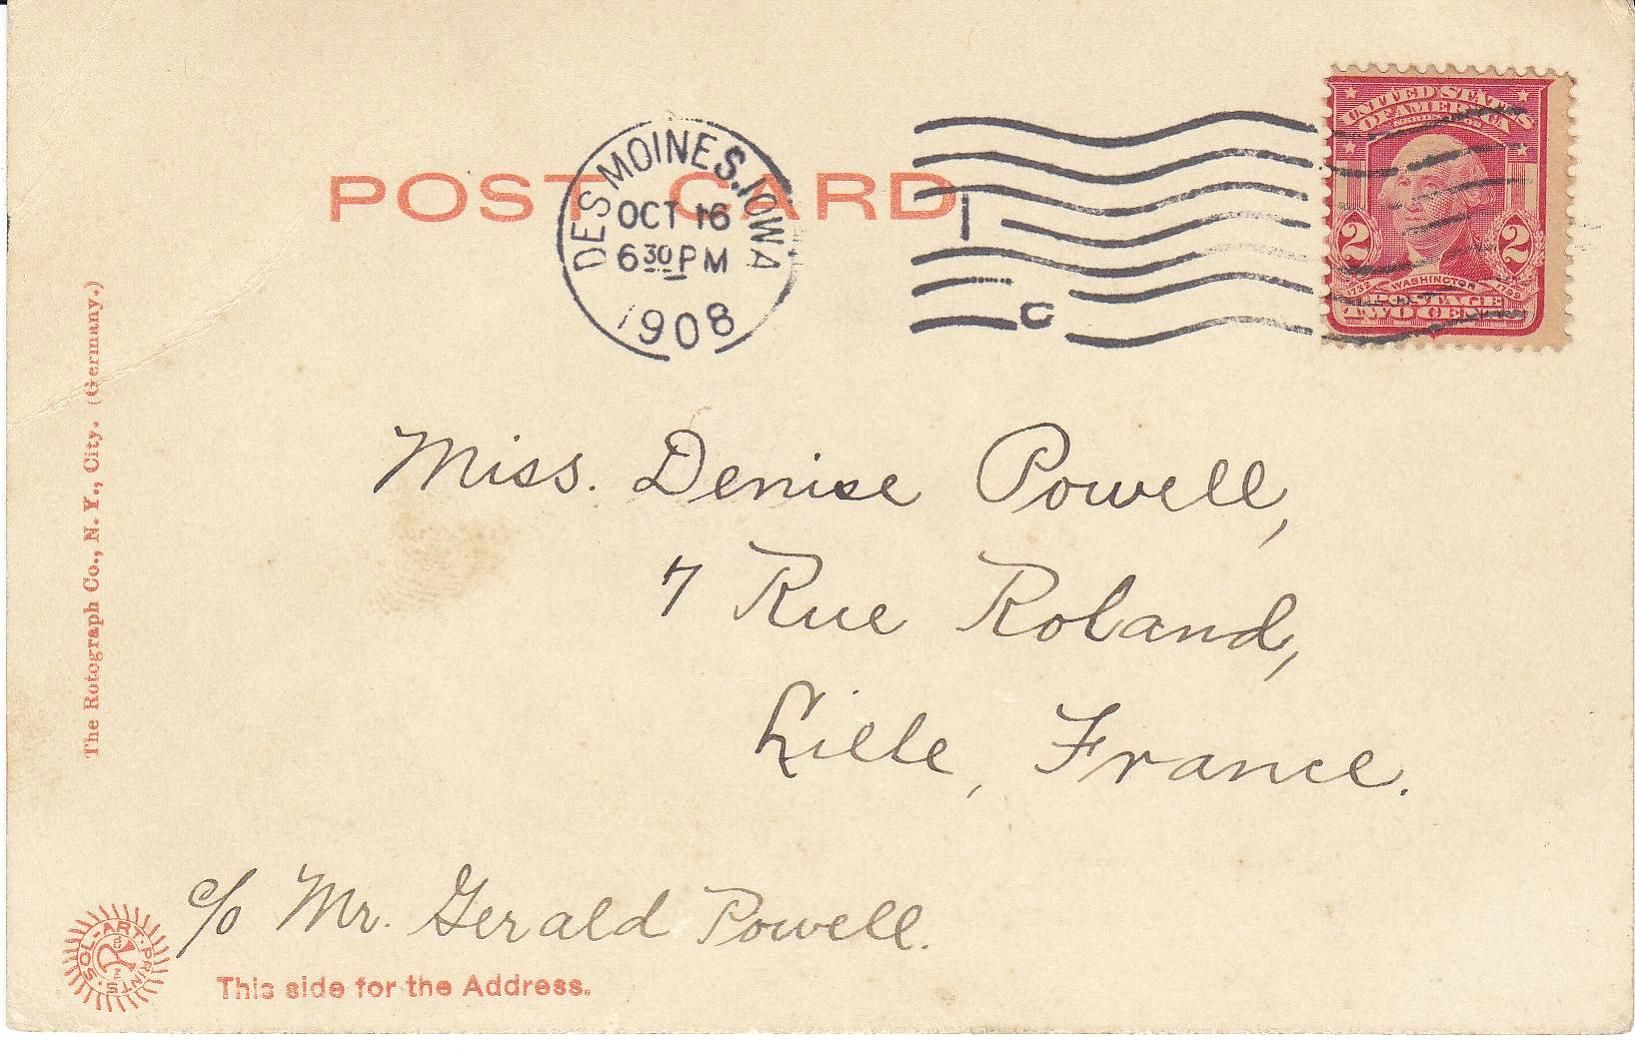 POST CARD
DES MOINES, IOWA
OCT 16
6 30 PM
1908
1
C
UNITED STATES
OF AMERICA
2 2
1732 WASHINGTON 1799
POSTAGE
TWO CENTS
The Rotograph Co., N. Y., City. (Germany.)
Miss. Denise Powell,
7 Rue Roland,
Lille, France.
c/o Mr. Gerald Powell.
SOL-ART-PRINTS
R
This side for the Address.